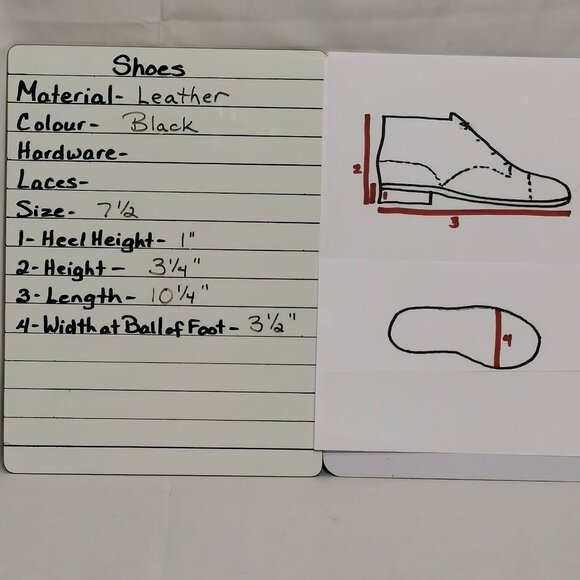 Shoes
Material- Leather
Colour- Black
Hardware-
Laces-
Size- 7 1/2
1- Heel Height- 1"
2- Height- 3 1/4"
3- Length- 10 1/4"
4- Width at Ball of Foot- 3 1/2"
2
1
3
4